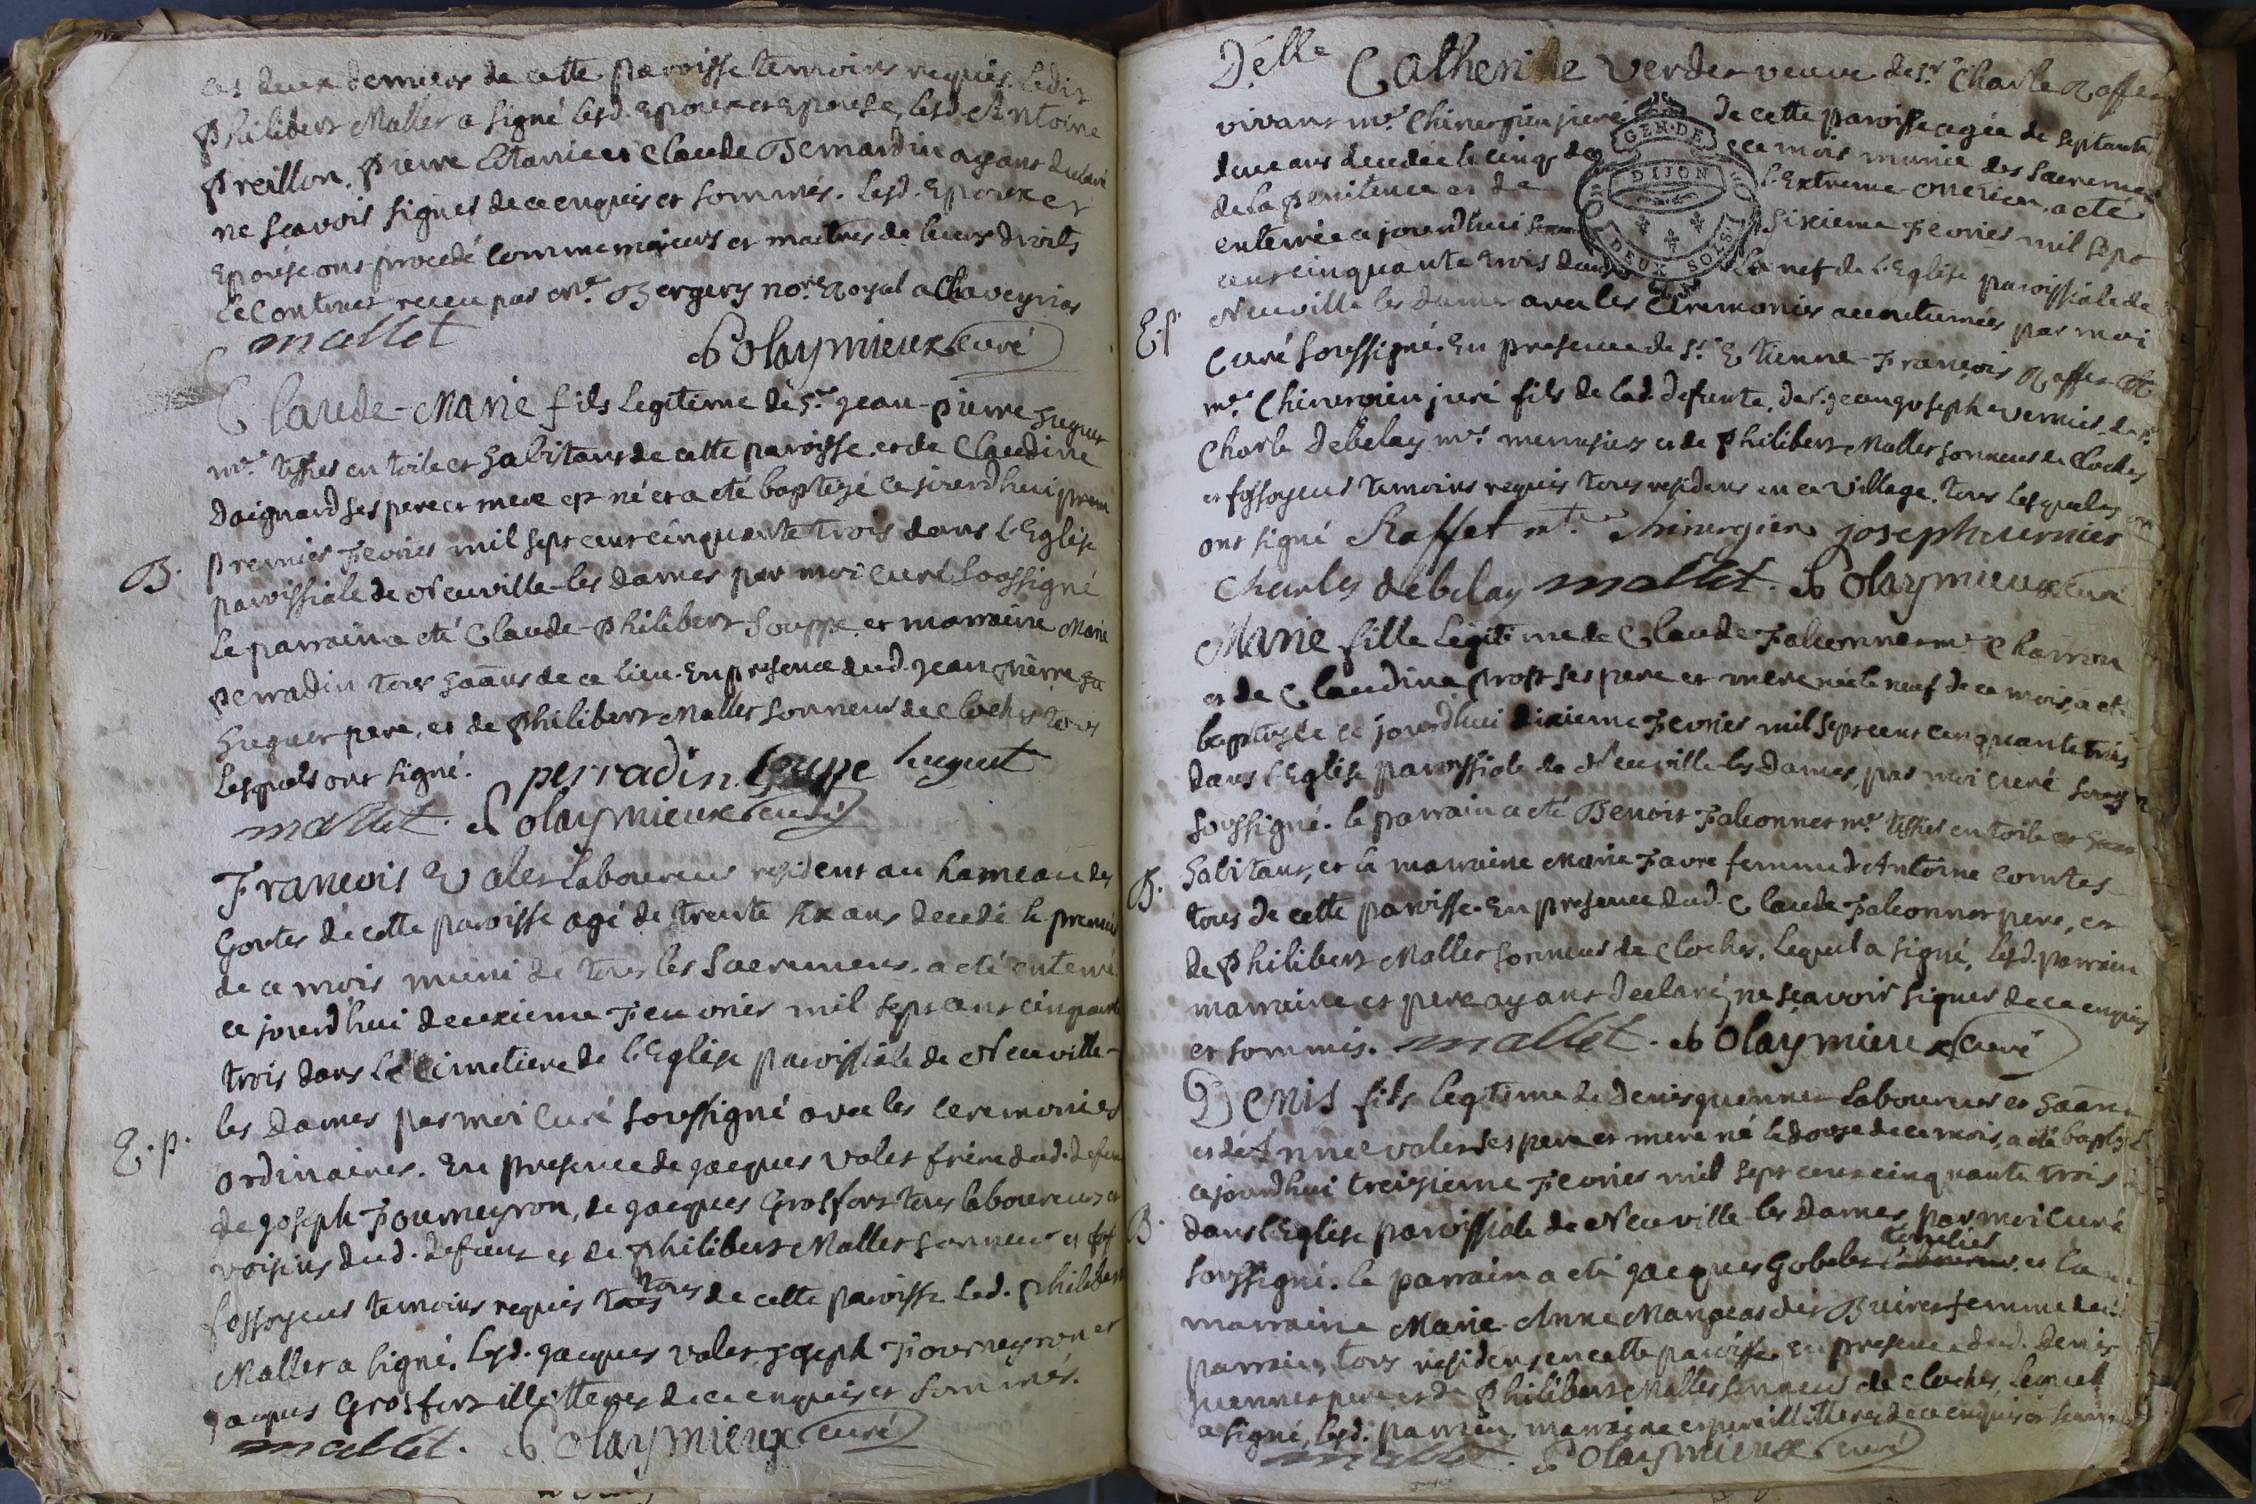 les deux derniers de cette paroisse temoins requis. Ledit
Philibert Mallet a signé lesd. Epoux et Epouse, lesd. Antoine
Preillon, Pierre et Claude Bernardin ayant declaré
ne sçavoir signer de ce enquis et sommés. Lesd. Epoux et
Epouse ont procedé comme majeurs et maitres de leurs droits
Le Contract receu par me. Bergery nore. Royal a Chaveyriat
mallet P Olaymieux curé
Claude-Marie fils legitime de Sr. jean-pierre huguet
me. tissier en toile et habitant de cette paroisse et de Claudine
Daignard ses pere et mere est né et a eté baptizé ce jourd'hui prem
premier Fevrier mil sept cent cinquante trois dans l'Eglise
B. paroissiale de Neuville-les Dames par moi curé soussigné
Le parrain a eté Claude-Philibert Souppe et marraine Marie
Perradin tous haans de ce lieu. En presence dud. jean pierre hu
huguet pere, et de Philibert Mallet sonneur de cloches tous
lesquels ont signé. perradin. Soupe huguet
mallet. P Olaymieux curé
Francois Valet laboureur resident au hameau des
Goutes de cette paroisse agé de trente six ans decedé le premier
de ce mois muni de tous les sacremens. a eté enterré
ce jourd'hui deuxieme Feuvrier mil sept cent cinquante
trois dans le cimetiere de l'Eglise paroissiale de Neuville-
E.p. les Dames par moi curé soussigné avec les ceremonies
ordinaires. En presence de jacques Valet frere dud. defunt
de joseph Fourneyron, de jacques Grosfort tous laboureurs et
voisins dud. defunt et de Philibert Mallet sonneur et fos
fossoyeur temoins requis tous tous de cette paroisse Led. Philibert
Mallet a signé. Lesd. jacques Valet, joseph Fourneyron et
jacques Grosfort illitterés de ce enquis et sommés.
mallet. P Olaymieux curé
D.elle Catherine Verdet veuve de Sr. Charle Raffet
vivant me. Chirurgien juré de cette paroisse agée de septante
deux ans decedée le cinq de ce mois munie des sacremens
de la penitence et de l'Extreme-onction. a eté
enterrée ce jourd'hui sixieme Fevrier mil sept
cent cinquante trois dans la nef de l'Eglise paroissiale de
GEN. DE DIJON DEUX SOLS
E.p. Neuville les Dames avec les ceremonies accoutumées par moi
Curé soussigné. En presence de Sr. Etienne-François Raffet
me. Chirurgien juré fils de lad. defunte, de Sr. jean joseph Vernier, de Sr.
Charle Debelay me. menuisier et de Philibert Mallet sonneur de cloches
et fossoyeur temoins requis tous residens en ce village. tous lesquels
ont signé Raffet me. chirurgien joseph vernier
Charles debelay mallet. P Olaymieux curé
Marie fille legitime de Claude Falconnet me. charron
et de Claudine Prost ses pere et mere née le neuf de ce mois, a eté
baptisée ce jourd'hui dixieme Fevrier mil sept cent cinquante trois
dans l'Eglise paroissiale de Neuville les Dames, par moi curé
soussigné. le parrain a eté Benoit Falconnet me. tissier en toile et
B. habitant, et la marraine Marie Favre femme d'Antoine Comtet
tous de cette paroisse. En presence dud. Claude Falconnet pere, et
de Philibert Mallet sonneur de cloches, Lequel a signé, lesd. parrain
marraine et pere ayant declaré ne sçavoir signer de ce enquis
et sommés. mallet. P Olaymieux curé
Denis fils legitime de Denis quennet laboureur et haan
et de Anne Valet ses pere et mere né le douze de ce mois, a eté baptizé
ce jourd'hui treizieme Fevrier mil sept cent cinquante trois
B. dans l'Eglise paroissiale de Neuville-les Dames, par moi curé
tonnelier
soussigné. le parrain a eté jacques Gobelet laboureur, et la
marraine Marie-Anne Mangeas femme de
parrain, tous residens en cette paroisse. En presence dud. Denis
quennet pere et de Philibert Mallet sonneur de cloches, lequel
a signé, lesd. parrein, marraine et pere illitterés de ce enquis et sommés
mallet. P Olaymieux curé